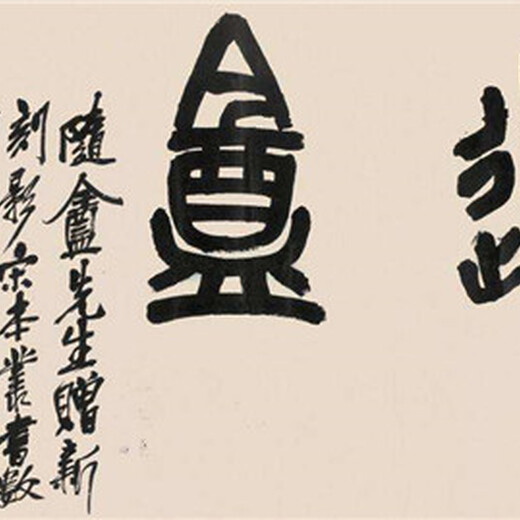 盦
隨盦先生贈新
刻影宋本叢書數